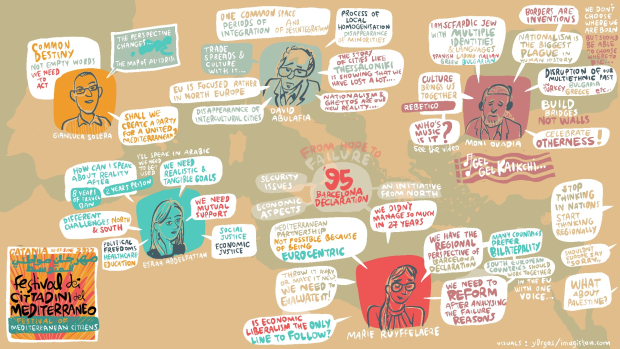 COMMON
DESTINY
NOT EMPTY WORDS
WE NEED
TO
ACT
THE PERSPECTIVE
CHANGES...
THE MAP OF AL IDRISI
GIANLUCA SOLERA
SHALL WE
CREATE A PARTY
FOR A UNITED
MEDITERRANEAN?
ONE COMMON SPACE
PERIODS OF AND
INTEGRATION OF DISINTEGRATION
TRADE
SPREADS &
CULTURE
WITH IT...
EU IS FOCUSED RATHER
IN NORTH EUROPE
DISAPPEARANCE OF
INTERCULTURAL CITIES
DAVID
ABULAFIA
PROCESS OF
LOCAL
HOMOGENISATION
DISAPPEARANCE
OF MINORITIES
THE STORY
OF CITIES LIKE
THESSALONIKI
IS SHOWING THAT WE
HAVE LOST A LOT...
NATIONALISM &
GHETTOS ARE OUR
NEW REALITY...
I'M SEFARDIC JEW
WITH MULTIPLE
IDENTITIES
& LANGUAGES
BORDERS ARE
INVENTIONS
NATIONALISM IS
THE BIGGEST
PLAGUE IN
HUMAN HISTORY
WE DON'T
CHOOSE
WHERE WE
ARE BORN
CULTURE
BRINGS US
TOGETHER
REBETICO
WHO'S
MUSIC IS
IT?
see the video
MONI OVADIA
DISRUPTION OF OUR
MULTIETHNIC PAST
TURKEY BULGARIA
GREECE etc...
BUILD
BRIDGES
NOT WALLS
CELEBRATE
OTHERNESS!
FROM HOPE TO
FAILURE?
95
BARCELONA
DECLARATION
SECURITY
ISSUES
ECONOMIC
ASPECTS
AN INITIATIVE
FROM NORTH
WE DIDN'T
MANAGE SO MUCH
IN 27 YEARS
HOW CAN I SPEAK
ABOUT REALITY
AFTER
2 YEARS PRISON
I'LL SPEAK IN ARABIC
WE NEED
REALISTIC &
TANGIBLE GOALS
WE NEED
MUTUAL
SUPPORT
DIFFERENT
CHALLENGES NORTH
& SOUTH
SOCIAL
JUSTICE
ECONOMIC
JUSTICE
POLITICAL
FREEDOMS
HEALTHCARE
EDUCATION
ESRAA ABDELFATTAH
MEDITERRANEAN
PARTNERSHIP
NOT POSSIBLE BECAUSE
OF BEING
EUROCENTRIC
THROW IT AWAY
OR MAKE IT NEW
WE NEED TO
EVALUATE!
IS ECONOMIC
LIBERALISM THE ONLY
LINE TO FOLLOW?
MARIE RUYFFELAERE
WE HAVE
THE REGIONAL
PERSPECTIVE OF
BARCELONA
DECLARATION
MANY COUNTRIES
PREFER
BILATERALITY
SOUTH EUROPEAN
COUNTRIES SHOULD
WORK TOGETHER
IN THE EU
WITH ONE
VOICE...
WE NEED TO
REFORM
AFTER ANALYSING
THE FAILURE
REASONS
STOP
THINKING
IN NATIONS
START
THINKING
REGIONALLY
SHOULDN'T
EUROPE SAY
"SORRY"
WHAT
ABOUT
PALESTINE?
CATANIA
Festival dei
CITTADINI del
MEDITERRANEO
FESTIVAL OF
MEDITERRANEAN CITIZENS